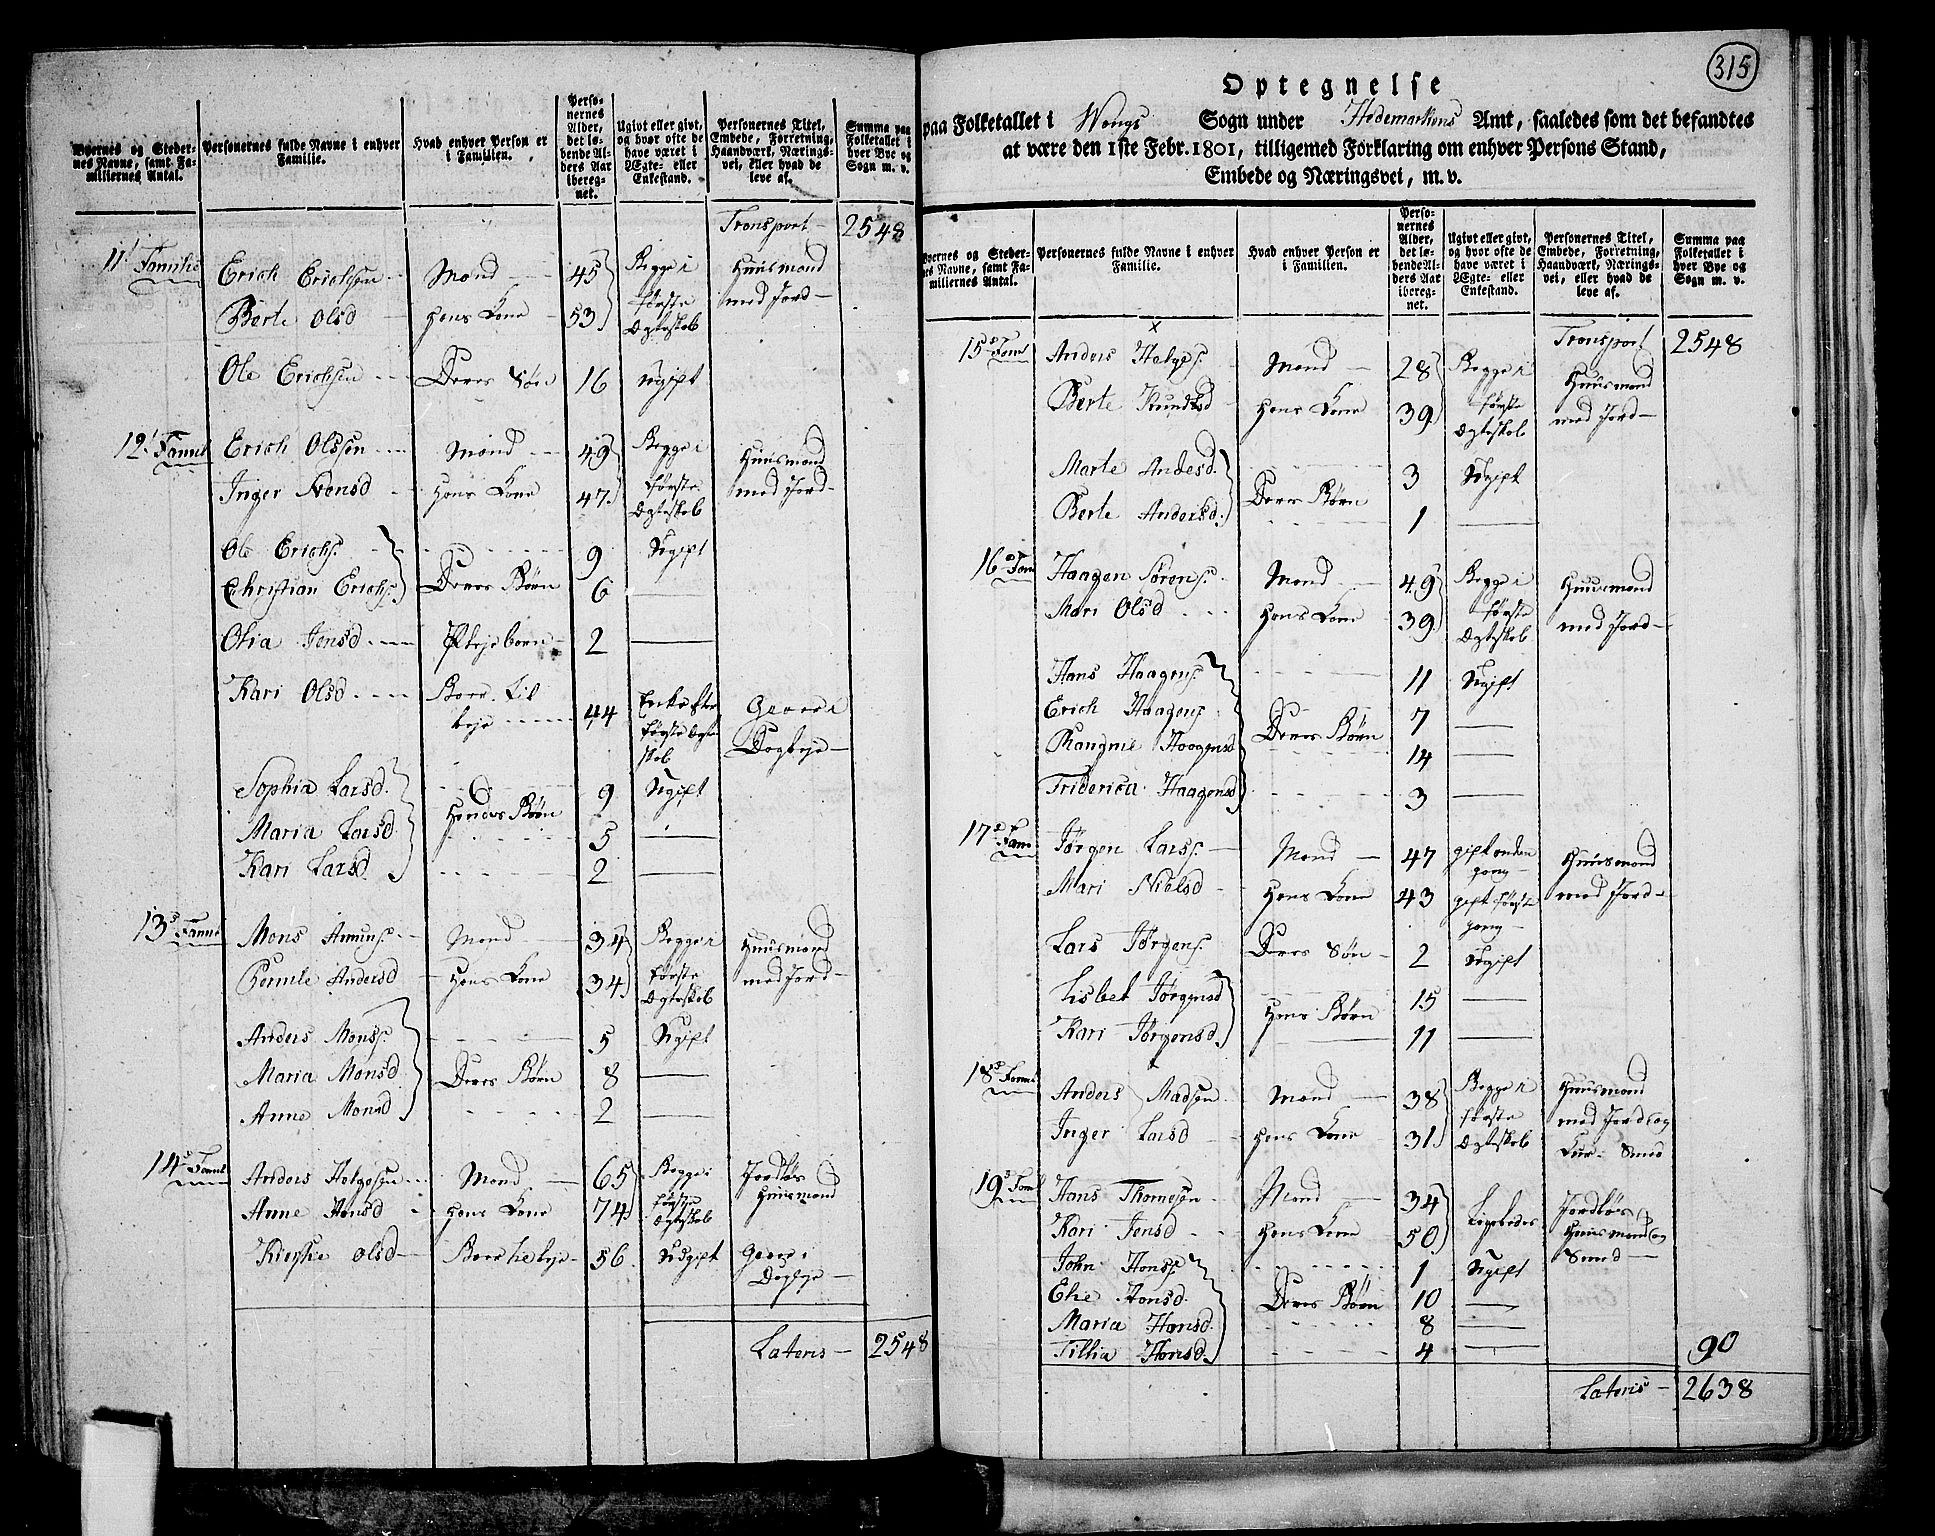 315
Byernes og Steder-
nes Navne, samt Fa-
miliernes Antal.
Personernes fulde Navne i enhver
Familie.
Hvad enhver Person er
i Familien.
Perso-
nernes
Alder,
det lø-
bende Al-
ders Aar
ibereg-
net.
Ugivt eller givt,
og hvor ofte de
have været i
Ægte- eller
Enkestand.
Personernes Titel,
Embede, Forretning,
Haandværk, Nærings-
vei, eller hvad de
leve af.
Summa paa
Folketallet i
hver Bye og
Sogn m. v.
Transport — 2548
11' Familie Erich Erichsen Mand 45 Begge i Huusmand
Berte Olsd Hans Kone 53 første med Jord
Ægteskab
Ole Erichsen Deres Søn 16 Ugift
12' Famil Erich Olssen Mand 49 Begge i Huusmand
Inger Svensd Hans Kone 47 første med Jord
Ægteskab
Ole Erichs. 9 Ugift
Christian Erichs. Deres Børn 6 —
Olia Jensd Plejebarn 2 —
Kari Olsd Boer til leje 44 Enke efter Gaaer i
første Ægte- Dagleje
skab
Sophia Larsd. 9 Ugift
Maria Larsd Hendes Børn 5 —
Kari Larsd 2 —
13s Famil Mons Amuns. Mand 34 Begge i Huusmand
Pernille Andersd Hans Kone 34 første med Jord
Ægteskab
Anders Monss. 5 Ugift
Maria Monsd Deres Børn 8 —
Anne Monsd 2 —
14s Famil Anders Helgesen Mand 65 Begge i Jordløs
Anne Hansd Hans Kone 74 første Huusmand
Ægteskab
Olsd Boer til leje 56 Ugift Gaaer i
Dagleje
Lateris — 2548
Optegnelse
paa Folketallet i Wangs Sogn under Hedemarkens Amt, saaledes som det befandtes
at være den 1ste Febr. 1801, tilligemed Forklaring om enhver Persons Stand,
Embede og Næringsvei, m. v.
Byernes og Steder-
nes Navne, samt Fa-
miliernes Antal.
Personernes fulde Navne i enhver
Familie.
Hvad enhver Person er
i Familien.
Perso-
nernes
Alder,
det lø-
bende Al-
ders Aar
ibereg-
net.
Ugivt eller givt,
og hvor ofte de
have været i
Ægte- eller
Enkestand.
Personernes Titel,
Embede, Forretning,
Haandværk, Nærings-
vei, eller hvad de
leve af.
Summa paa
Folketallet i
hver Bye og
Sogn m. v.
Transport 2548
15s Faml Anders Helges. Mand 28 Begge i Huusmand
Berte Knudsd Hans Kone 39 første med Jord
Ægteskab
Marte Andesd. 3 Ugift
Berte Andersd. Deres Børn 1 —
16s Fam Haagen Sørens. Mand 49 Begge i Huusmand
Mari Olsd Hans Kone 39 første med Jord
Ægteskab
Hans Haagens. 11 Ugift
Erich Haagens 7 —
Rangnil Haagensd Deres Børn 14 —
Friderica Haagensd 3 —
17s Fam Jørgen Larss. Mand 47 gift anden gang Huusmand
Mari Nielsd Hans Kone 43 gift første gang med Jord
Lars Jørgens. Deres Søn 2 Ugift
Lisbet Jørgensd 15 —
Kari Jørgensd. Hans Børn 11 —
18s Faml Anders Madsen Mand 38 Begge i Huusmand
Inger Larsd Hans Kone 31 første med Jord og
Ægteskab Smed
19s Faml Hans Thomesen Mand 34 Ligeledes Jordløs
Kari Jensd Hans Kone 50 Huusmand og
John Hanss. 1 Ugift Smed
Else Hansd. Deres Børn 10 —
Maria Hansd. 8 —
Tillia Hansd. 4 — 90
Lateris — 2638